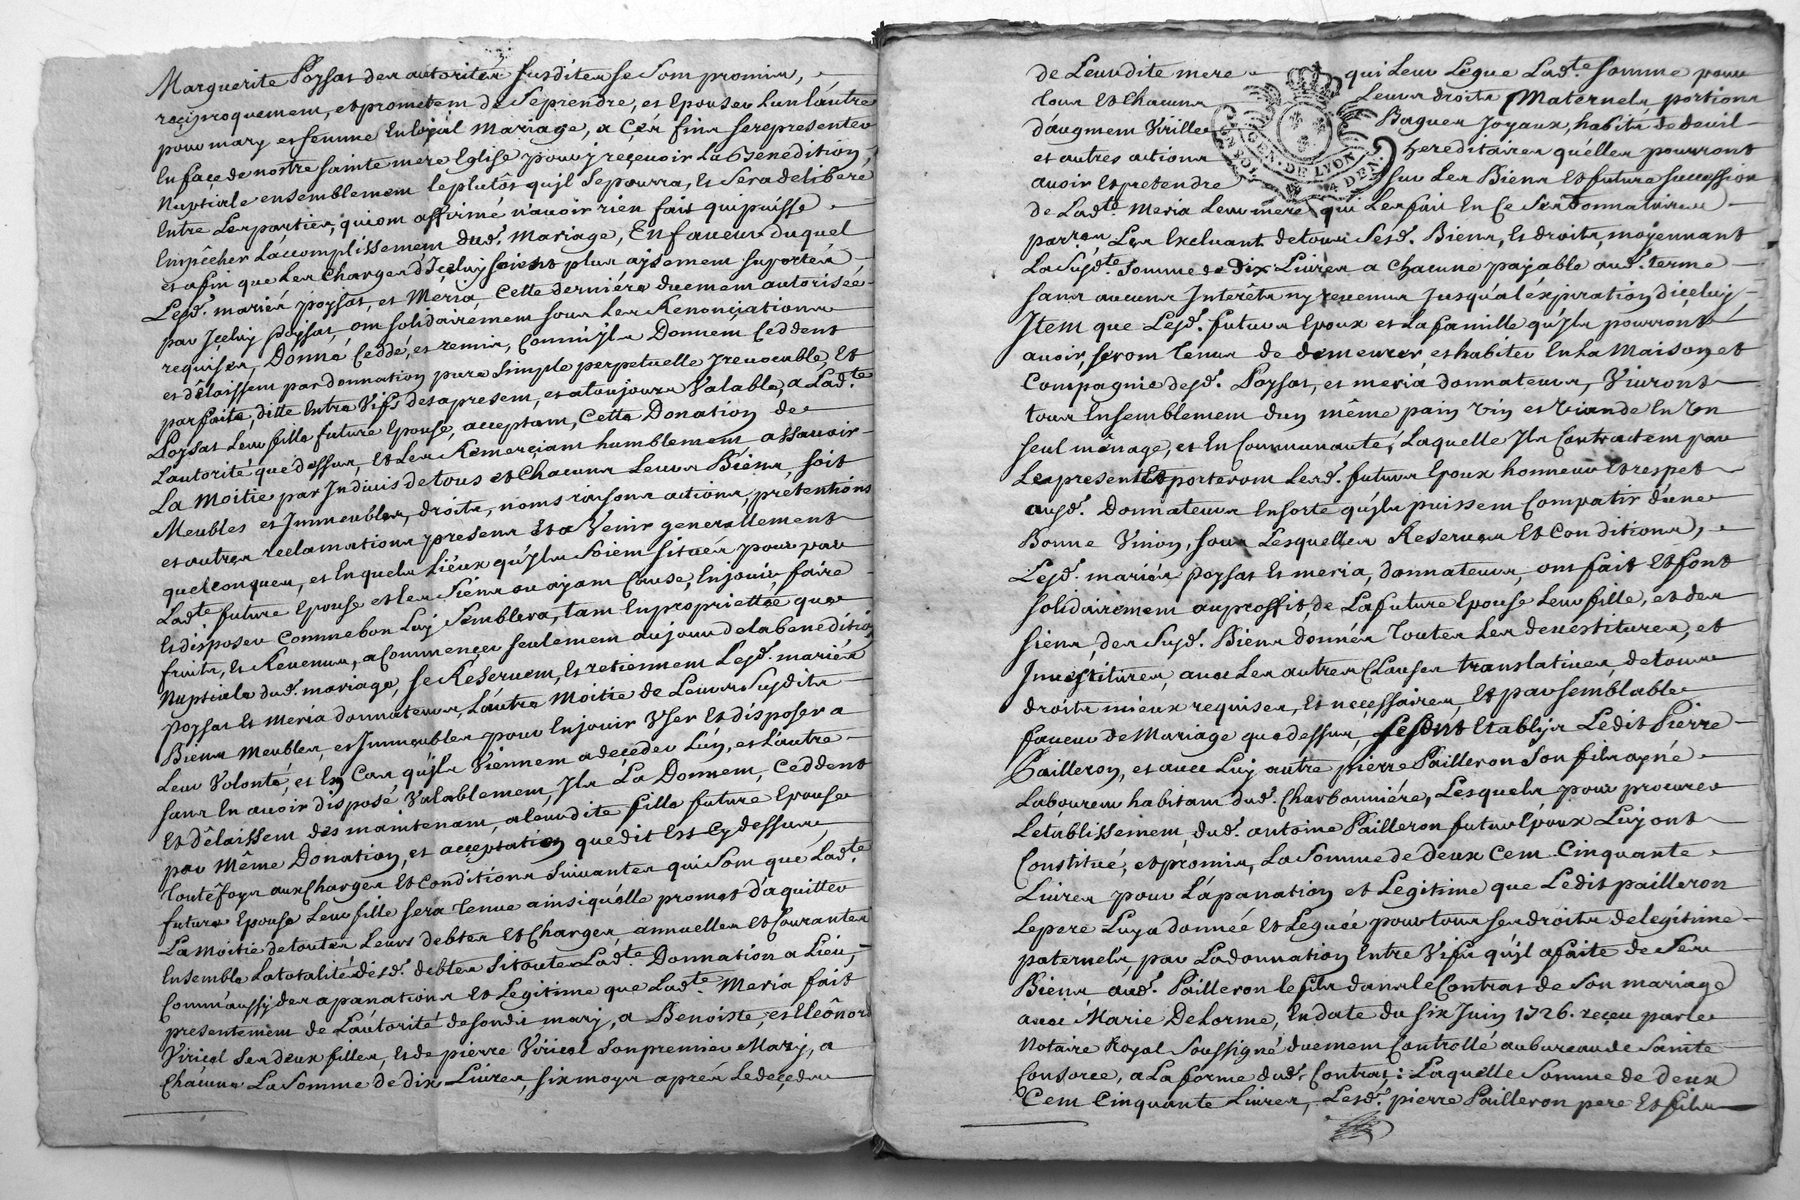 Marguerite Poysat des autorités susdites se sont promis,
reciproquement, et promettent de se prendre, et Epouser L'un L'autre
pour mary et femme En Loyal Mariage, a Ces fins se representer
En face de nostre sainte mere Eglise pour y reçevoir La Benediction,
Nuptiale ensemblement le plutôt qu'jl se pourra, Et sera deliberé
Entre Les parties, qui ont affirmé n'avoir rien fait qui puisse
Empêcher L'accomplissement dud. Mariage, En faveur duquel
et afin que Les Charges d'Jçeluy soient plus aysement suportés
Lesd. mariés poysat, et Meria, Cette derniére duement autorisée
par Jçeluy poysat, ont solidairement sous Les Renonçiations
requises, Donné Ceddé, et remis, Comm'jls Donnent Ceddent
et délaissent par donnation pure simple perpetuelle Jrevocable, Et
parfaite, ditte Entre Vifs des apresent, et a toujours Valable, a Lad.te
Poysat Leur fille future Epouse, acceptant, Cette Donation de
L'autorité que dessus, Et Les Remerçiant humblement assavoir
La Moitie par Jndivis de tous et Chacuns Leurs Biens, soit
Meubles et Jmmeubles, droits, noms raisons actions, pretentions
et autres reclamations presens Et a Venir generallement
quelconques, et En quels Liéux qu'Jls soient situés pour par
Lad.te future Epouse et les siens ou ayant Cause, En jouir, faire
Et disposer comme bon Luy Semblera, tant En proprietté que
fruits, Et Revenus, a Commencer seulement au jour de la benedition
Nuptiale dud. mariage, se Reservent, Et retiennent Lesd. mariés
poysat Et Meria donnateurs, L'autre Moitié de Leurs Susdits
Biens Meubles, et Jmmeubles pour En jouir User Et disposer a
Leur Volonté, et En Cas qu'jls Viennent a deçeder L'un, et L'autre
sans En avoir disposé Valablement, Jls La Donnent, Ceddent
Et Délaissent dès maintenant, a leurdite fille future Epouse
par Même Donation, et acceptation que dit Est Cy dessus,
Toutéfoys aux Charges Et conditions suivantes qui sont que Lad.te
future Epouse Leur fille sera tenue ainsi qu'elle promet d'aquitter
La moitie de toutes Leurs debtes Et Charges annuelles Et Courantes
Ensemble La totalité desd. debtes si toutes Lad.te Donnation a Lieu,
Comm'aussy des apanations Et Legitime que Lad.te Meria fait
presentement de L'autorité de sondit mary, a Benoiste, et Eleônord
Virieal ses deux filles, Et de pierre Virieal son premier Mary, a
Chacune La somme de dix Livres, six moys aprés Le deçeds
de Leurdite mere qui Leur Legue Lad.te somme pour
tous Et Chacuns Leurs droits Maternels, portions
d'augment Virille Bagues Joyaux, habits de deuil
et autres actions hereditaires qu'elles pourront
avoir Et pretendre sur Les Biens Et future succession
de Lad.te Meria Leur mere qui Les fait En Ce Ses donnataires
par.res Les Excluant de tous Sesd. Biens, Et droits, moyennant
La Susd.te somme de dix Livres a Chacune payable aud. terme
sans aucuns Jnterêts ny revenus Jusqu'a l'éxpiration d'içeluy,
Jtem que Lesd. futurs Epoux et La famille qu'Jls pourront
avoir, seront Tenus de demeurer et habiter En La Maison et
Compagnie desd. Poysat, et meria donnateurs, Vivront
tous Ensemblement d'un même pain Vin et Viande En Un
seul ménage, et En Communauté, Laquelle Jls Contractent par
Les presentes Et porteront Lesd. futurs Epoux honneur Et respet
ausd. Donnateurs En sorte qu'jls puissent Compatir d'une
Bonne Union, sous Lesquelles Reserves Et Conditions,
Lesd. mariés poysat Et meria, donnateurs, ont fait Et font
solidairement au proffit de La future Epouse Leur fille, et des
siens, des Susd. Biens donnés Toutes Les devestitures, et
Jnvestitures, avec Les autres Clauses translatives de tous
droits mieux requises, Et neçessaires, Et par semblable
faveur de Mariage que dessus, se sont Etablys Ledit Pierre
Pailleron, et avec Luy autre pierre Pailleron Son fils ayné
Laboureur habitant dud. Charbonniére, Lesquels pour procurer
L'établissement, dud. antoine Pailleron futur Epoux Luy ont
Constitué, et promis, La Somme de deux Cent Cinquante
Livres pour L'apanation et Legitime que Ledit pailleron
Le pere Luy a donnée et Leguée pour tous ses droits de legitime
paternels, par La donnation Entre Vifs qu'jl a faite de Ses
Biens aud. Pailleron le fils dans le Contrat de Son mariage
avec Marie Delorme, En date du six Juin 1726. reçeu par le
Notaire Royal Soussigné duement Controllé au bureau de Sainte
Consorce, a La forme dud. Contrat: Laquelle Somme de deux
Cent Cinquante Livres, Lesd. pierre Pailleron pere Et fils
GEN. DE LYON
4 DEN.